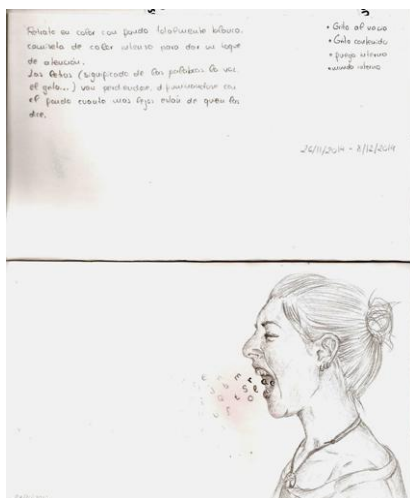 Retrato en color con fondo totalmente blanco,
camiseta de color intenso para dar un toque
de atención.
Las letras (significado de las palabras la voz,
el grito...) van perdiendose, difuminandose con
el fondo cuanto mas lejos están de quien las
dice.
• Grito al vacio
• Grito contenido
• fuego interno
• mundo interno
26/11/2014 - 8/12/2014